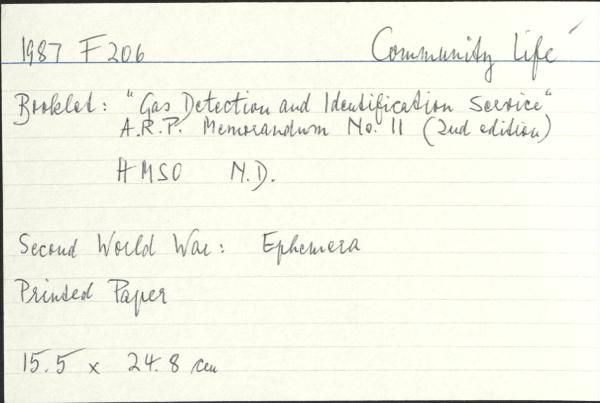 1987 F 206 Community Life
Booklet: "Gas Detection and Identification Service"
A.R.P. Memorandum No. 11 (2nd edition)
HMSO N.D.
Second World War: Ephemera
Printed Paper
15.5 x 24.8 cm